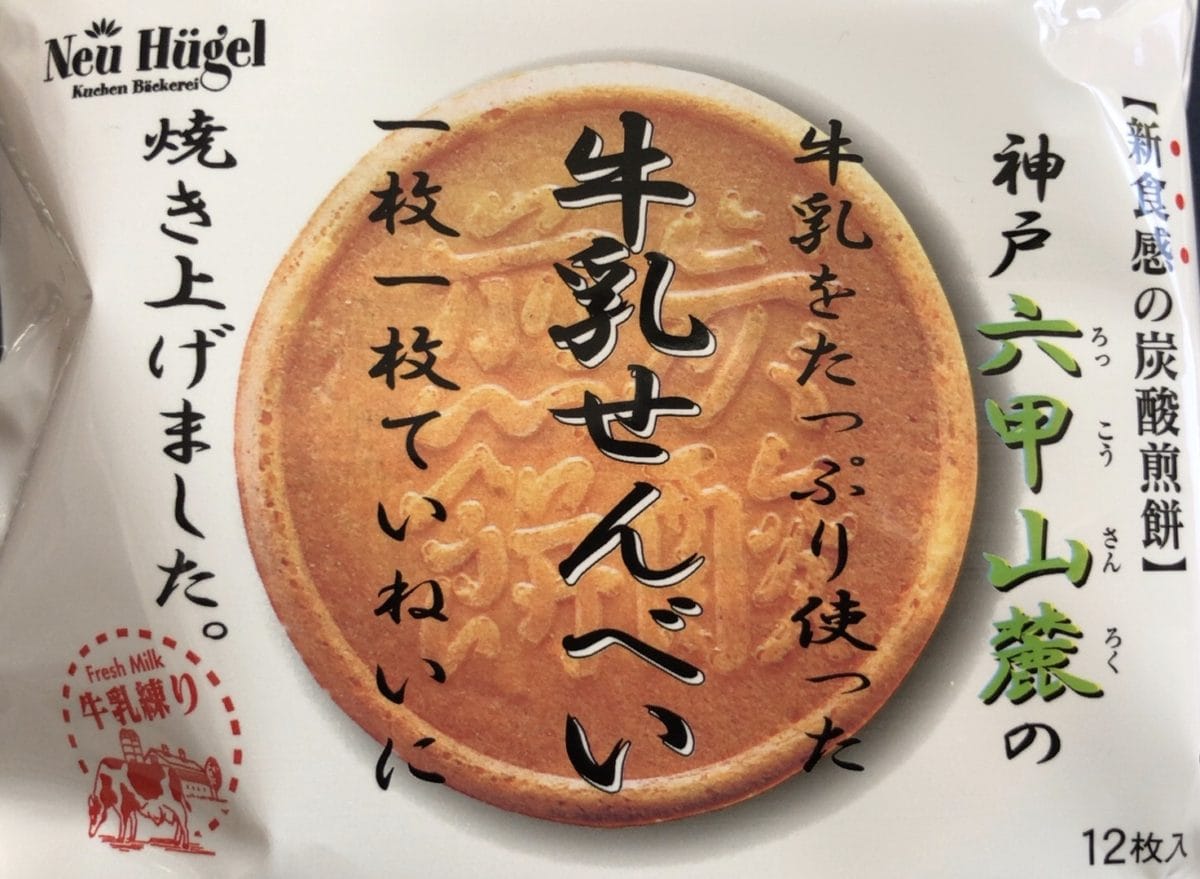 Neu Hügel
Kuchen Bäckerei
【新食感の炭酸煎餅】
神戸六甲山麓の
ろっこうさんろく
牛乳をたっぷり使った
牛乳せんべい
一枚一枚ていねいに
焼き上げました。
Fresh Milk
牛乳練り
12枚入